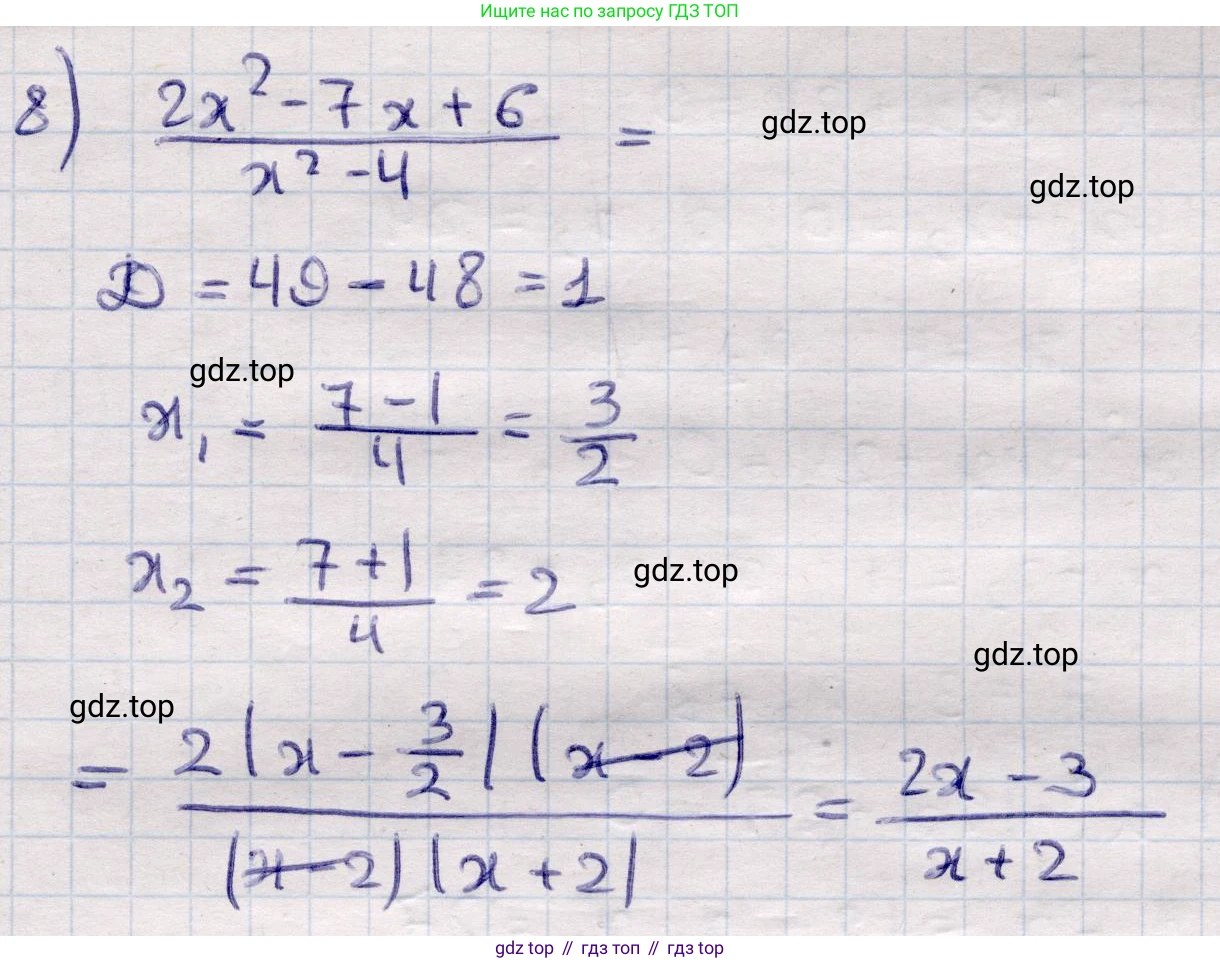 Ищите нас по запросу ГДЗ ТОП
8) (2x² - 7x + 6)/(x² - 4) =
gdz.top
gdz.top
D = 49 - 48 = 1
gdz.top
x₁ = (7 - 1)/4 = 3/2
x₂ = (7 + 1)/4 = 2
gdz.top
gdz.top
gdz.top
= (2(x - 3/2)(x - 2))/((x - 2)(x + 2)) = (2x - 3)/(x + 2)
gdz top // гдз топ // гдз top